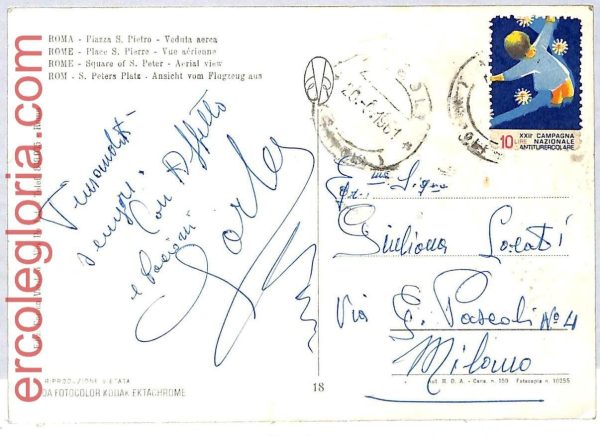 ROMA - Piazza S. Pietro - Veduta aerea
ROME - Place S. Pierre - Vue aérienne
ROME - Square of S. Peter - Aerial view
ROM - S. Peters Platz - Ansicht vom Flugzeug aus
XXIIª CAMPAGNA
10 LIRE NAZIONALE
ANTITUBERCOLARE
Pensandoti
sempre.
Con Affetto
e Bacioni
Carlo
Giuliana Locati
Via G. Pascoli Nº 4
Milano
RIPRODUZIONE VIETATA
DA FOTOCOLOR KODAK EKTACHROME
18
Aut. R. D. A. - Cans. n. 150 Fotocopia n. 10255
ercolegloria.com